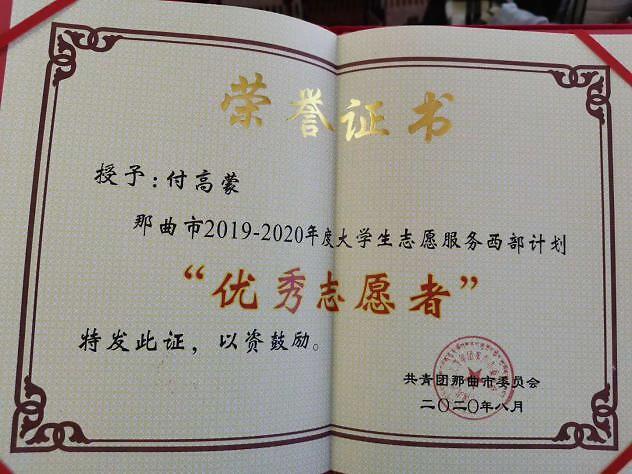 荣誉证书
授予：付高蒙
那曲市2019-2020年度大学生志愿服务西部计划
“优秀志愿者”
特发此证，以资鼓励。
共青团那曲市委员会
二〇二〇年八月